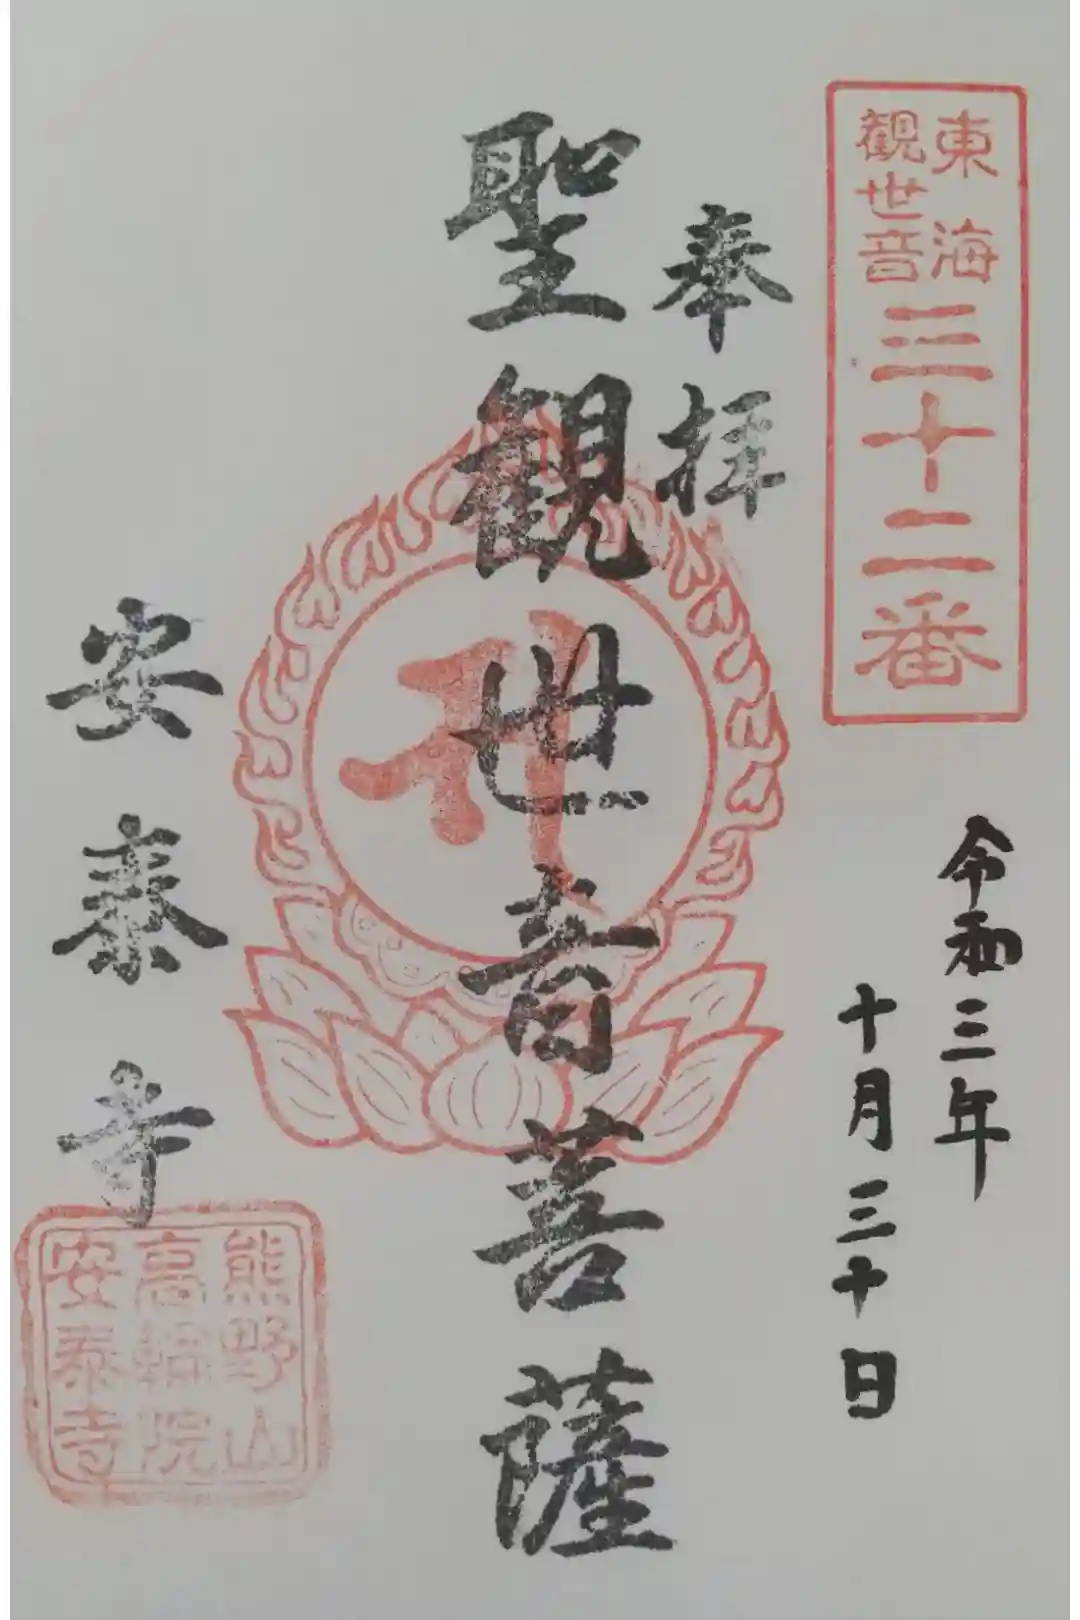 東海
観世音
三十二番
奉拝
令和三年
十月三十日
聖観世音菩薩
安泰寺
熊野山
高輪院
安泰寺